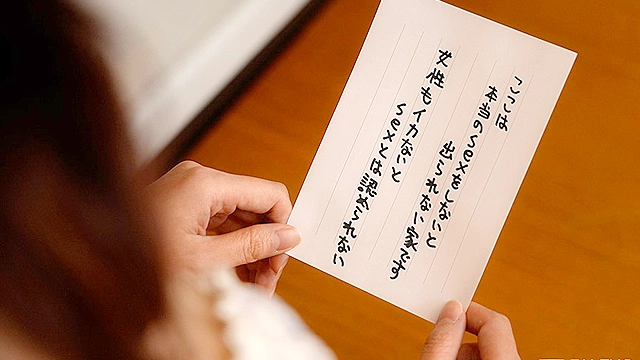 ここは
本当のsexをしないと
出られない家です
女性もイカないと
sexとは認められない